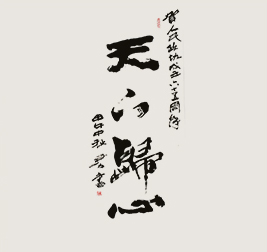 賀人民政協成立六十五周年
天下歸心
甲午中秋